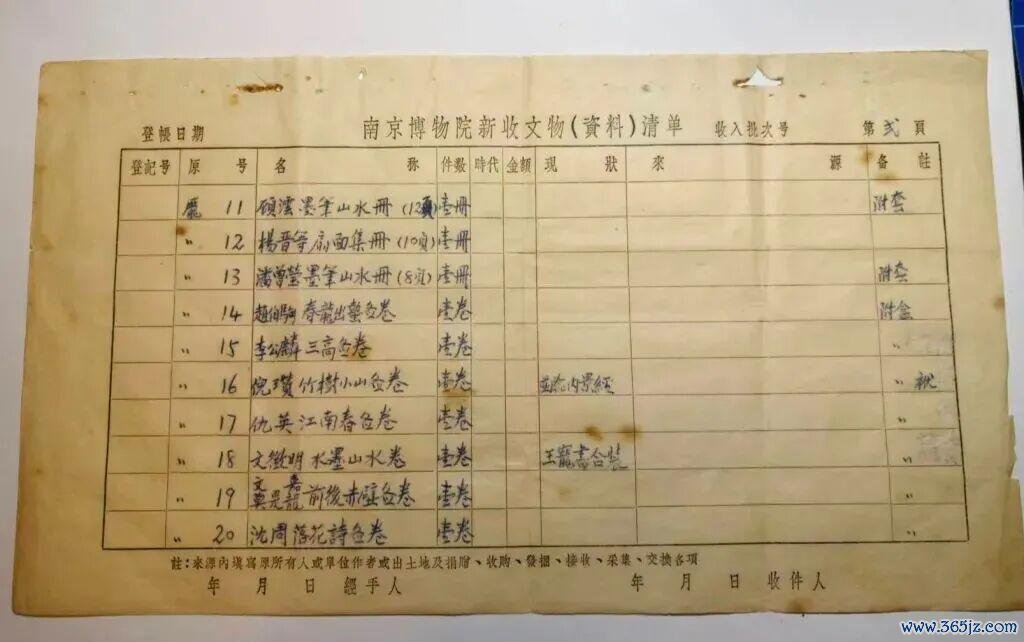 南京博物院新收文物(資料)清单
登帳日期 收入批次号 第 弍 頁
登記号 原号 名称 件数 時代 金額 現狀 來源 备註
龐 11 顾澐墨筆山水冊 (12頁) 壹冊 附套
〃 12 楊晋等扇面集冊 (10頁) 壹冊
〃 13 潘曾瑩墨筆山水冊 (8頁) 壹冊 附套
〃 14 趙伯駒 春龍出蟄啚卷 壹卷 附盒
〃 15 李公麟 三高啚卷 壹卷 〃
〃 16 倪瓚 竹樹小山啚卷 壹卷 内景經 〃
〃 17 仇英 江南春啚卷 壹卷 〃
〃 18 文徵明 水墨山水卷 壹卷 王寵書合裝 〃
〃 19 文嘉 莫是龍 前後赤壁啚卷 壹卷 〃
〃 20 沈周 落花詩啚卷 壹卷 〃
註:來源內填寫原所有人或單位作者或出土地及捐贈、收购、發掘、接收、采集、交換各項
年 月 日 經手人 年 月 日 收件人
www.365jz.com